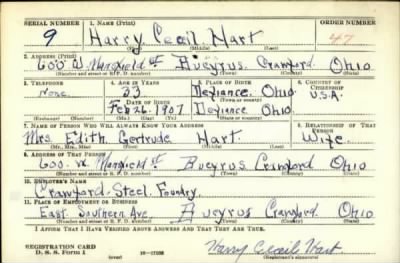 SERIAL NUMBER 1. NAME (Print) ORDER NUMBER
9 Harry Cecil Hart 47
(First) (Middle) (Last)
2. ADDRESS (Print)
600 W. Mansfield St Bucyrus Crawford Ohio
(Number and street or R. F. D. number) (Town) (County) (State)
3. TELEPHONE 4. AGE IN YEARS 5. PLACE OF BIRTH 6. COUNTRY OF CITIZENSHIP
None 33 Defiance, Ohio U.S.A.
DATE OF BIRTH (Town or county)
Feb 26 1907 Defiance Ohio
(Exchange) (Number) (Mo.) (Day) (Yr.) (State or country)
7. NAME OF PERSON WHO WILL ALWAYS KNOW YOUR ADDRESS 8. RELATIONSHIP OF THAT PERSON
Mrs. Edith Gertrude Hart Wife
(Mr., Mrs., Miss) (First) (Middle) (Last)
9. ADDRESS OF THAT PERSON
600 W. Mansfield St Bucyrus Crawford Ohio
(Number and street or R. F. D. number) (Town) (County) (State)
10. EMPLOYER'S NAME
Crawford Steel Foundry
11. PLACE OF EMPLOYMENT OR BUSINESS
East Southern Ave, Bucyrus Crawford Ohio
(Number and street or R. F. D. number) (Town) (County) (State)
I AFFIRM THAT I HAVE VERIFIED ABOVE ANSWERS AND THAT THEY ARE TRUE.
REGISTRATION CARD
D. S. S. Form 1 (over) Harry Cecil Hart
(Registrant's signature)